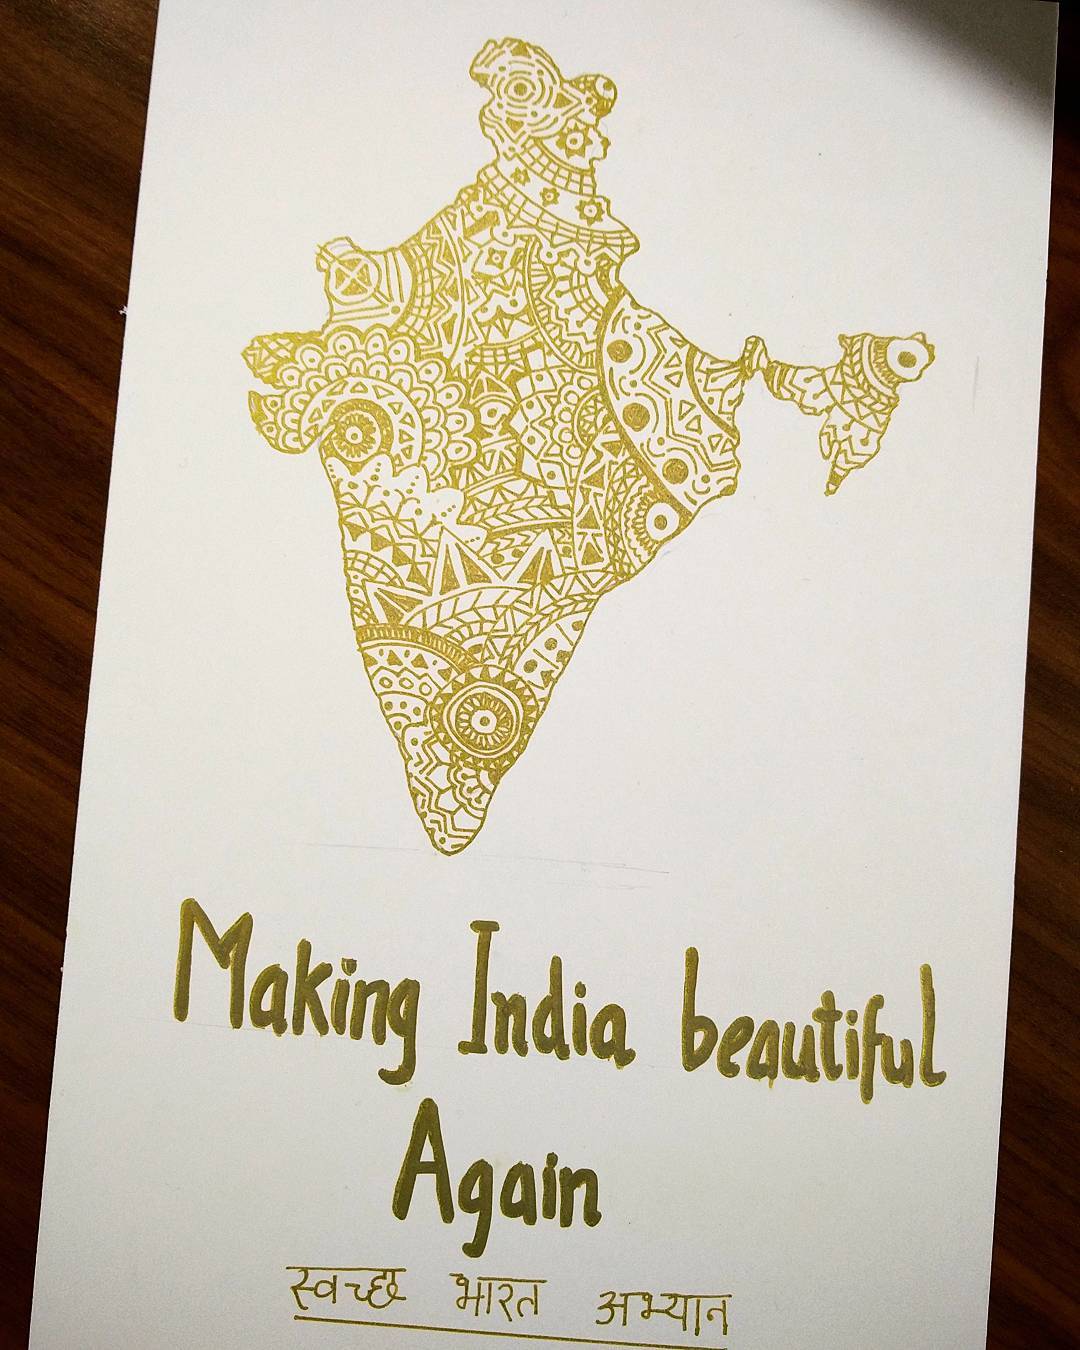 Making India beautiful
Again
स्वच्छ भारत अभ्यान